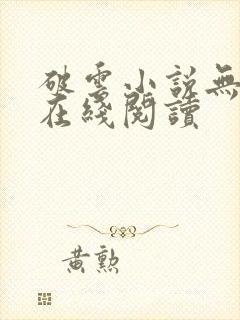 破雲小說無
在綫閱讀
黃勲